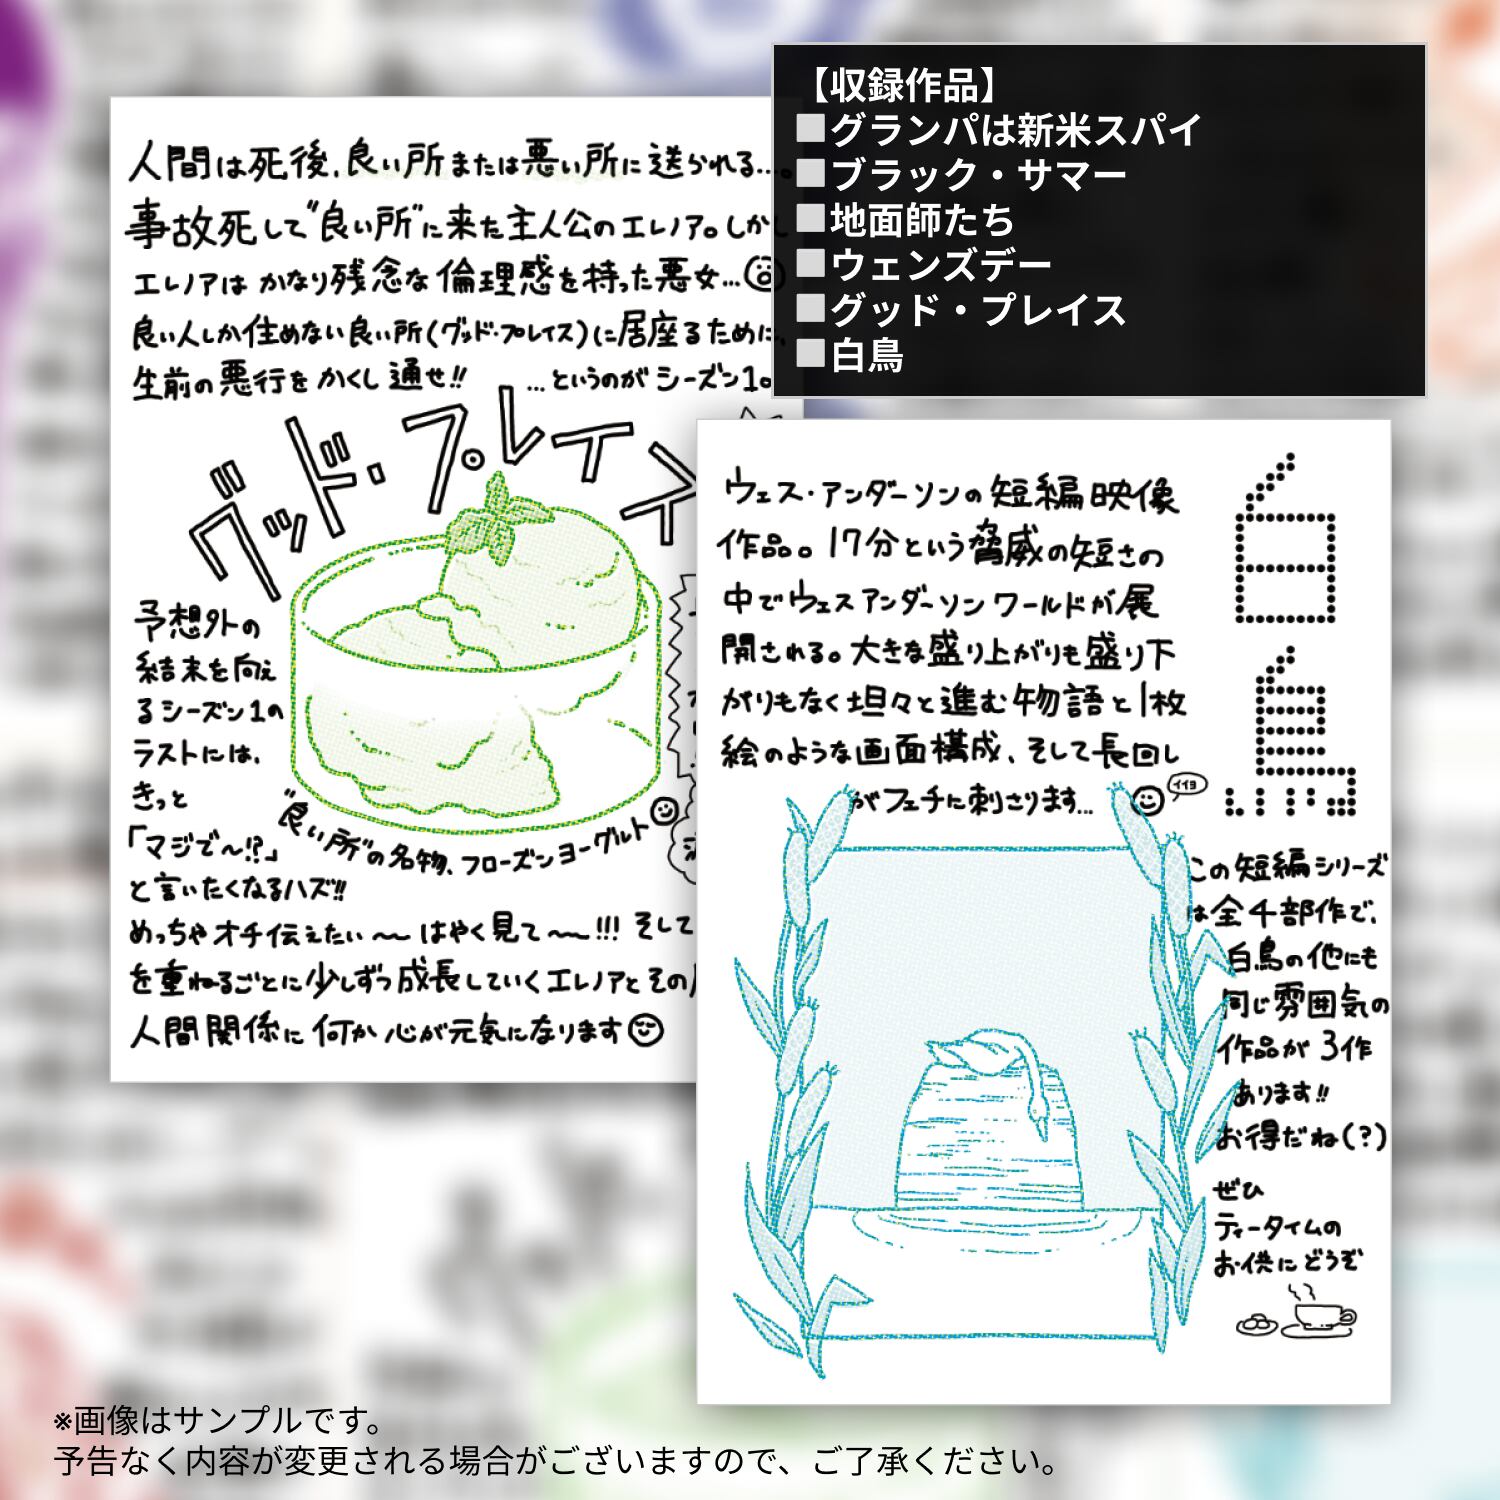 【収録作品】
■グランパは新米スパイ
■ブラック・サマー
■地面師たち
■ウェンズデー
■グッド・プレイス
■白鳥
人間は死後、良い所または悪い所に送られる…。
事故死して"良い所"に来た主人公のエレノア。しかし
エレノアは かなり残念な倫理感を持った悪女…
良い人しか住めない良い所(グッド・プレイス)に居座るために、
生前の悪行を かくし通せ!! …というのが シーズン1。
グッド・プレイス
予想外の
結末を向え
るシーズン1の
ラストには、
きっと
「マジで〜!?」
と言いたくなるハズ!!
"良い所"の名物、フローズンヨーグルト
めっちゃオチ伝えたい〜〜 はやく見て〜〜!!! そして
を重ねるごとに少しずつ成長していくエレノアとその
人間関係に 何か 心が元気になります
白鳥
ウェス・アンダーソンの短編映像
作品。17分という脅威の短さの
中でウェスアンダーソンワールドが展
開される。大きな盛り上がりも盛り下
がりもなく坦々と進む物語と1枚
絵のような画面構成、そして長回し
がフェチに刺さります…
イイヨ
この短編シリーズ
は全4部作で、
白鳥の他にも
同じ雰囲気の
作品が3作
あります!!
お得だね(?)
ぜひ
ティータイムの
お供にどうぞ
※画像はサンプルです。
予告なく内容が変更される場合がございますので、ご了承ください。